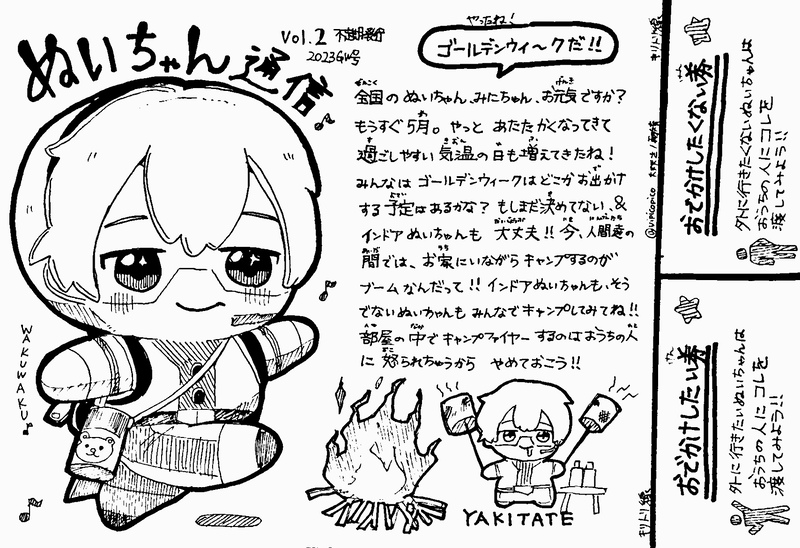 ぬいちゃん通信
Vol.2 不定期発行
2023GW号
やったね!
ゴールデンウィ〜クだ!!
全国の ぬいちゃん、みにちゃん、お元気ですか?
もうすぐ5月。やっと あたたかくなってきて
過ごしやすい 気温の日も増えてきたね!
みんなは ゴールデンウィークはどこかお出かけ
する予定はあるかな? もしまだ決めてない、&
インドア ぬいちゃんも 大丈夫!! 今、人間達の
間では、お家にいながら キャンプするのが
ブームなんだって!! インドアぬいちゃんも、そう
でないぬいちゃんも みんなでキャンプしてみてね!!
部屋の中でキャンプファイヤーするのはおうちの人
に 怒られちゃうから やめておこう!!
WAKUWAKU
YAKITATE
キリトリ線
おでかけしたくない券
外に行きたくないぬいちゃんは
おうちの人にコレを
渡してみよう!!
@vipicopico
おでかけしたい券
外に行きたいぬいちゃんは
おうちの人にコレを
渡してみよう!!
キリトリ線